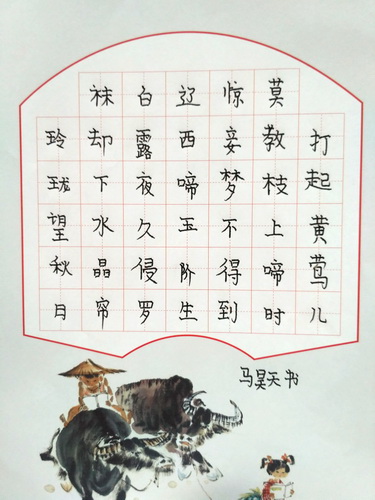 打起黄莺儿
莫教枝上啼时
惊妾梦不得到
辽西啼玉阶生
白露夜久侵罗
袜却下水晶帘
玲珑望秋日
马昊天书